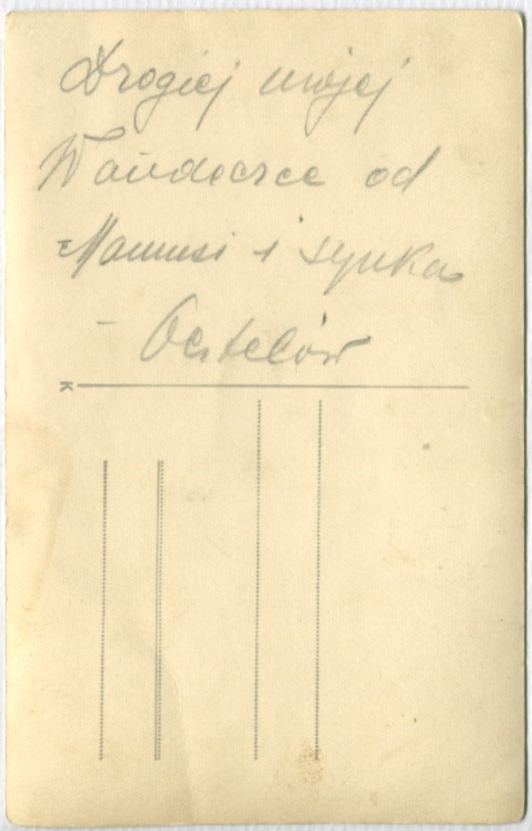 Drogiej mojej
Wandeczce od
Mamusi i synka
- Oertelów
K